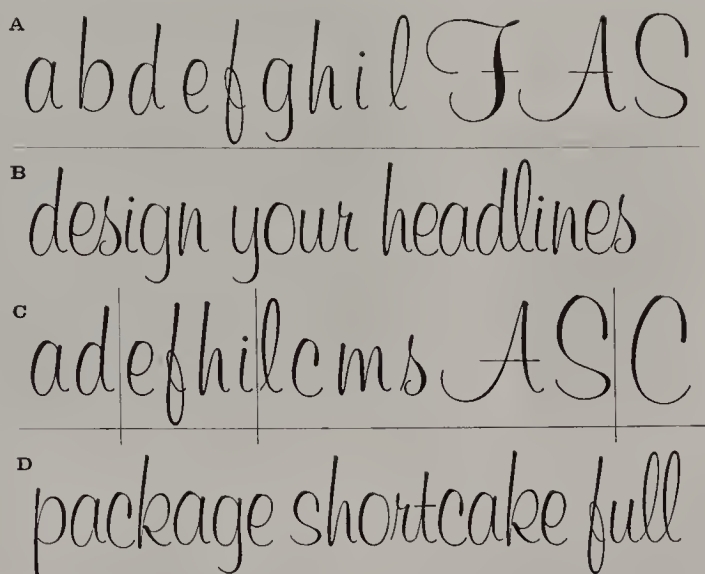 A a b d e f g h i l F A S
B design your headlines
C a d e f h i l c m s A S C
D package shortcake full